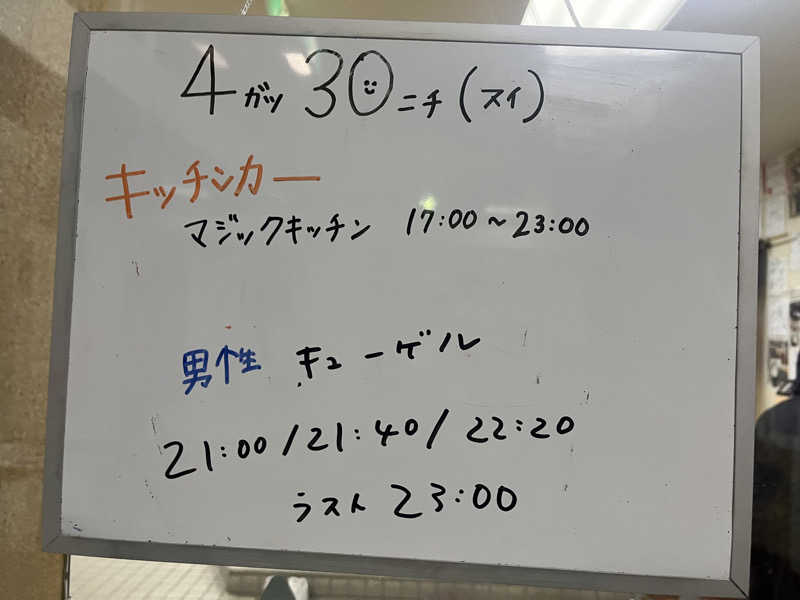 4ガツ30ニチ(スイ)
キッチンカー
マジックキッチン 17:00~23:00
男性 キューゲル
21:00/21:40/22:20
ラスト23:00